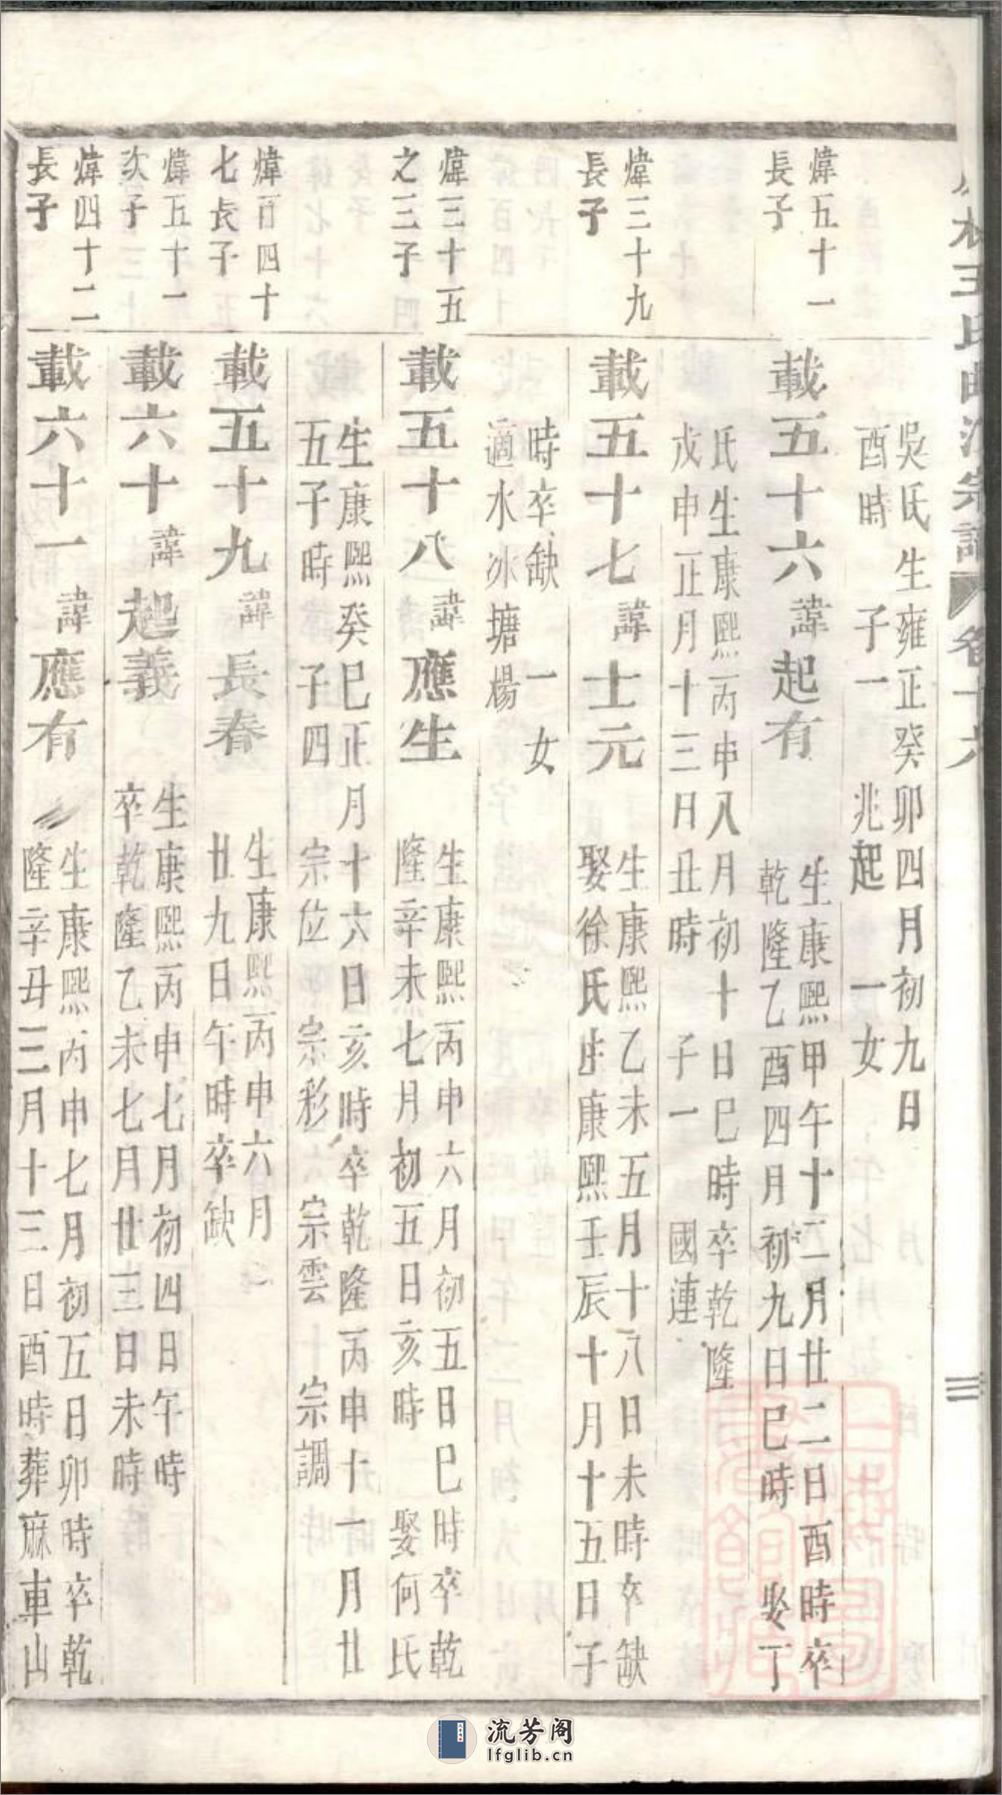 林王氏曲江宗譜
卷十六
吳氏生雍正癸卯四月初九日
酉時 子一 兆起 一女
煒五十一
長子
載五十六諱起有
生康熙甲午十二月廿二日酉時卒
乾隆乙酉四月初九日巳時 娶丁
氏生康熙丙申八月初十日巳時卒乾隆
戊申正月十三日丑時 子一 國連
煒三十九
長子
載五十七諱士元
生康熙乙未五月十八日未時卒缺
娶徐氏生康熙壬辰十月十五日子
時卒缺 一女
適水冰塘楊
煒三十五
之三子
載五十八諱應生
生康熙丙申六月初五日巳時卒乾
隆辛未七月初五日亥時 娶何氏
生康熙癸巳正月十六日亥時卒乾隆丙申十一月廿
五子時 子四 宗位 宗彩 宗雲 宗調
煒百四十
七長子
載五十九諱長春
生康熙丙申六月
廿九日午時卒缺
煒五十一
次子
載六十諱起義
生康熙丙申七月初四日午時
卒乾隆乙未七月廿三日未時
煒四十二
長子
載六十一諱應有
生康熙丙申七月初五日卯時卒乾
隆辛丑三月十三日酉時葬麻車山
流芳阁
lfglib.cn